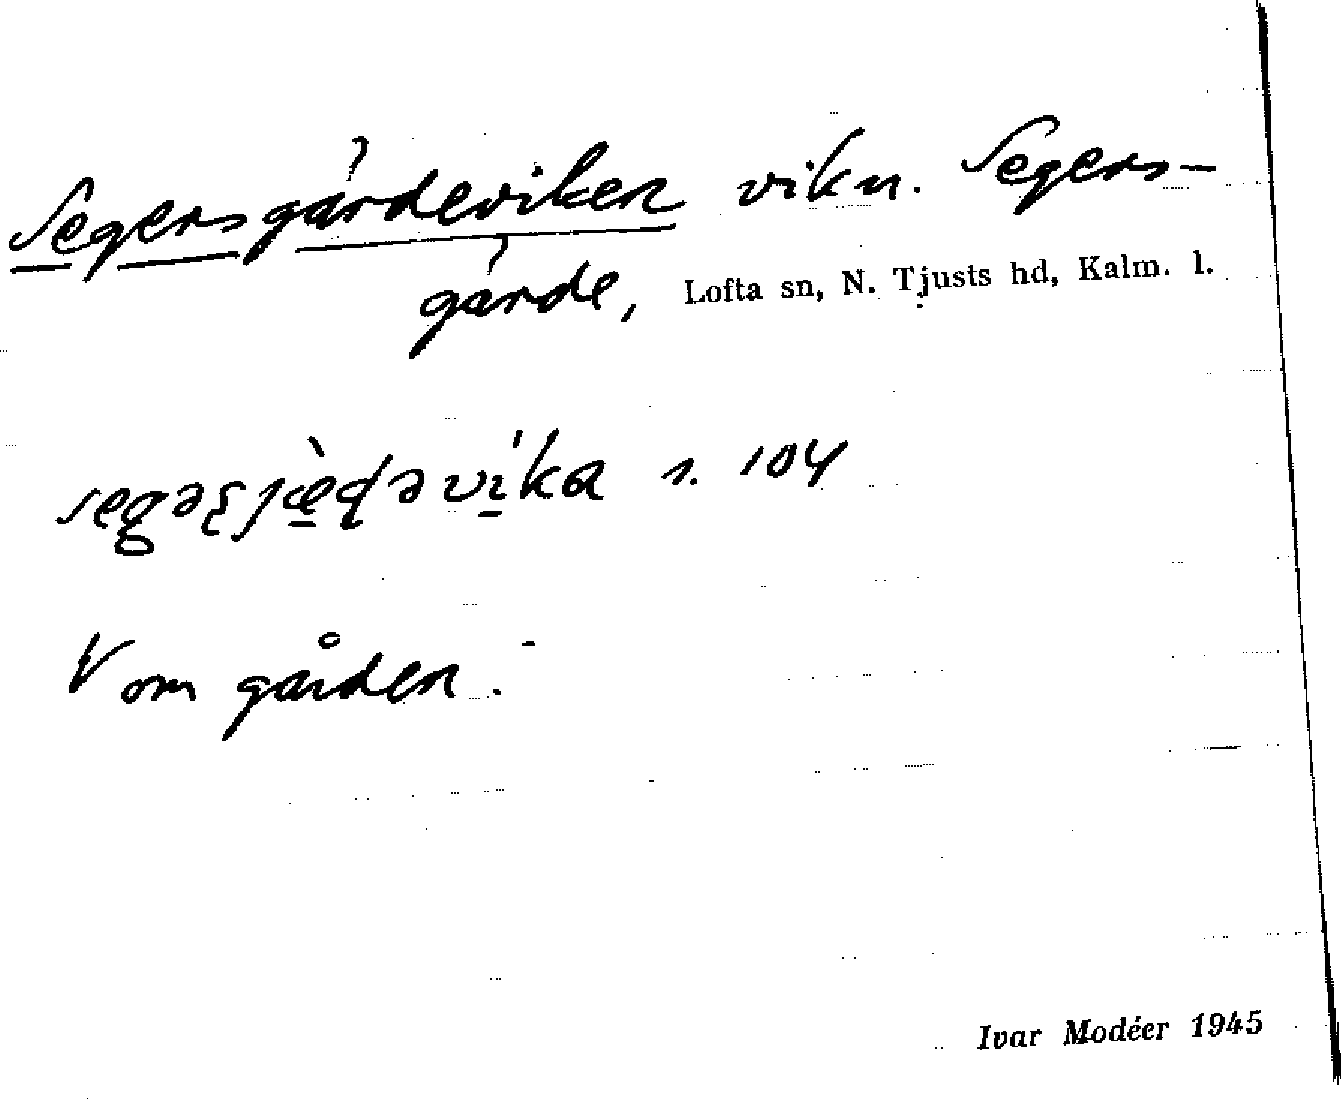 Segersgärdeviken vik n. Segers-
gärde, Lofta sn, N. Tjusts hd, Kalm. l.
s. 104
V om gården.
Ivar Modéer 1945